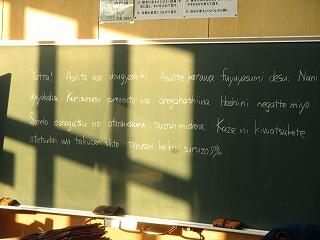 Yatta! Ashita wa shugyoshiki. Asatte karawa fuyuyasumi desu. Nani
shiyokana. Kurisumasu purezento wa aregahoshiina. Hoshini negatte miyo.
Soreto oshogatsu no otoshidama Tanoshimidana. Kaze ni kiwotsukete
otetsudai wo takusan shite takusan benkyo suruzo